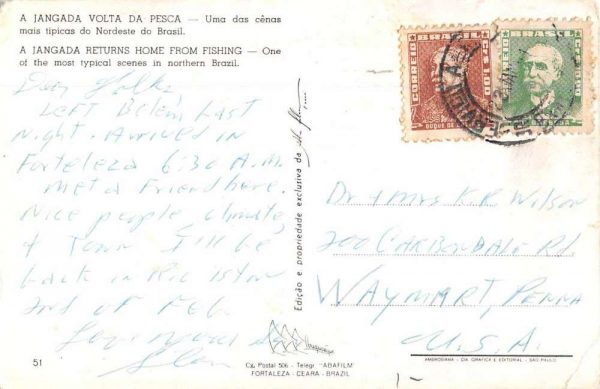 A JANGADA VOLTA DA PESCA — Uma das cênas
mais típicas do Nordeste do Brasil.
A JANGADA RETURNS HOME FROM FISHING — One
of the most typical scenes in northern Brazil.
Dear Folks
Left Belem Last
night. Arrived in
Forteleza 6:30 A.M.
met a Friend here.
Nice people, climate,
& Town I'll be
back in Rio 1st or
2nd of Feb
Love your Son
51
Edição e propriedade exclusiva da
Cx. Postal 506 - Telegr. "ABAFILM"
FORTALEZA - CEARA - BRAZIL
BRASIL
CORREIO
CR$ 1,00
DUQUE DE
BRASIL
CORREIO
Dr & Mrs K.R. Wilson
200 CARBONDALE Rd
WAYMART, PENNA
U.S.A.
AMBROSIANA - CIA GRÁFICA E EDITORIAL - SÃO PAULO